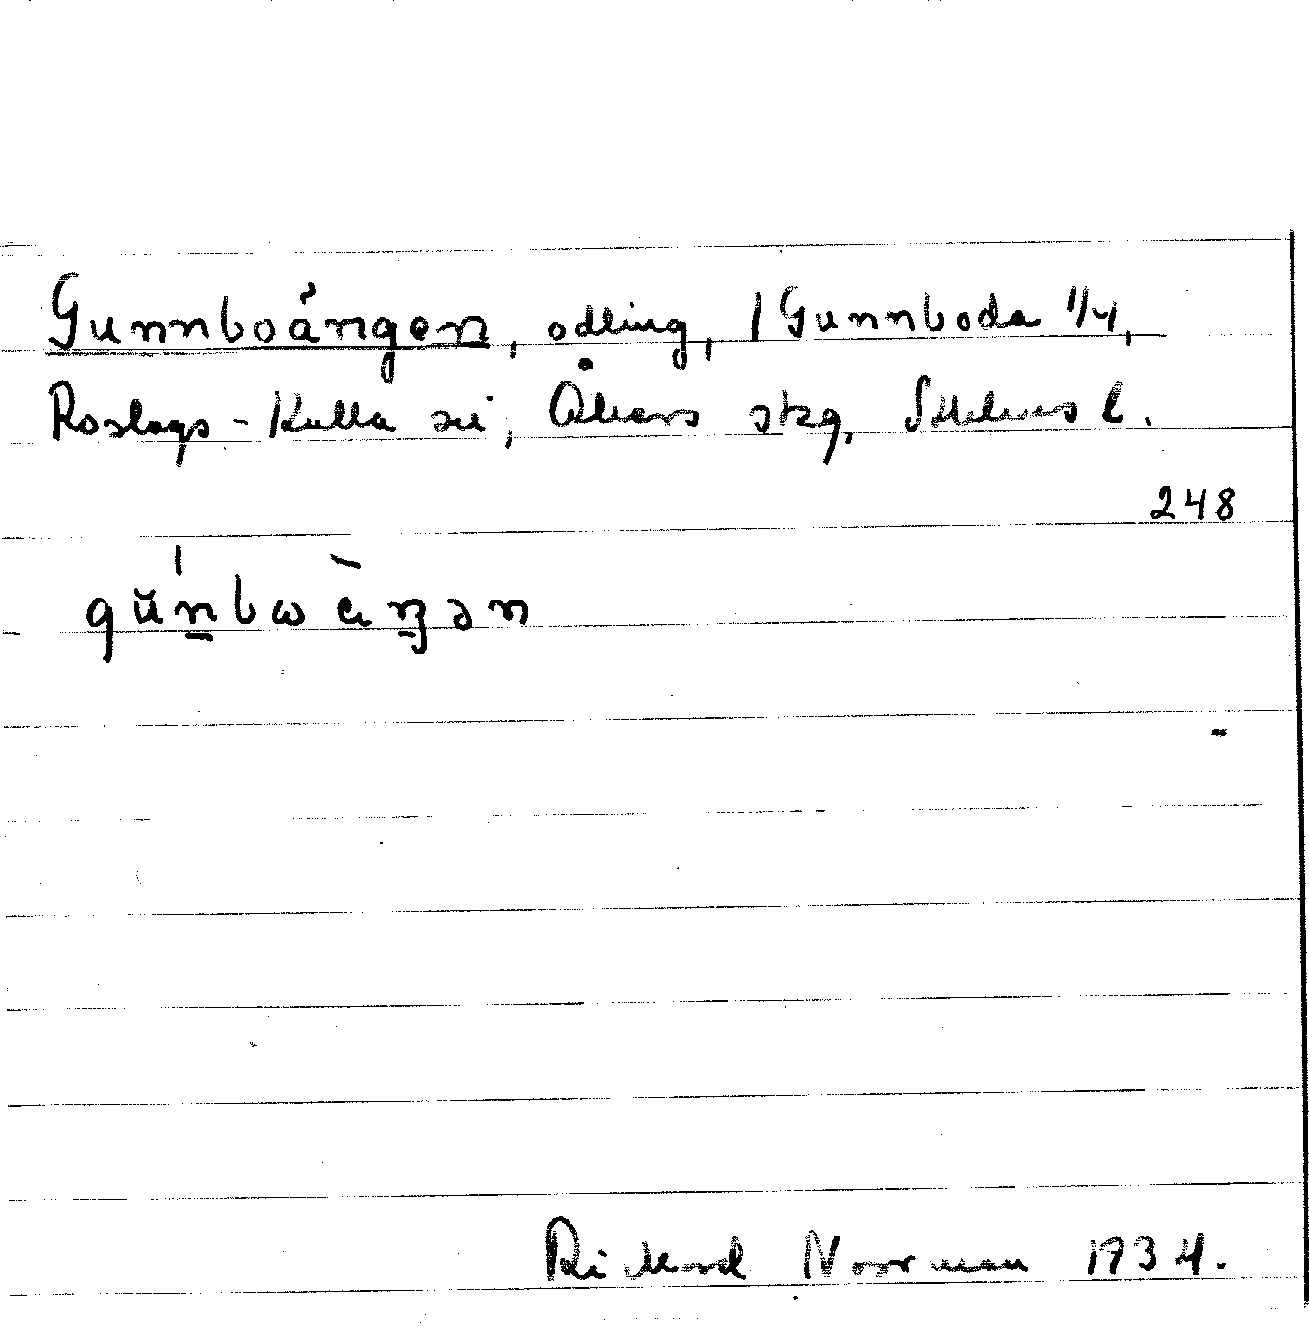 Gunnboängen, odling, / Gunnboda 1/4,
Roslags-Kulla sn, Åkers skg, Sthlms l.
248
gŭn̠bωàŋən
Rickard Norrman 1934.